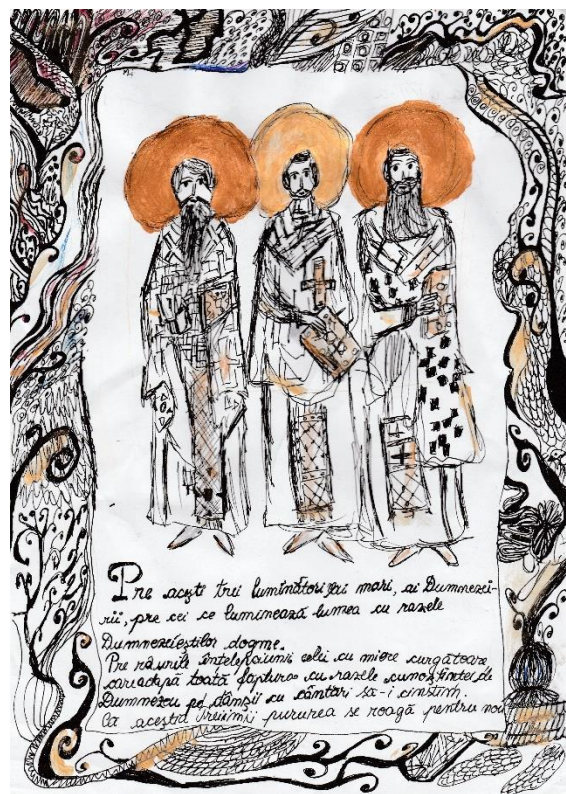 Pre acești trei luminători prea mari, ai Dumnezei-
rii, pre cei ce luminează lumea cu razele
Dumnezeieștilor dogme.
Pre râurile înțelepciunii celei cu miere curgătoare
care adapă toată făptura cu razele cunoștinței de
Dumnezeu pe dânșii cu cântări să-i cinstim.
Că aceștia Treimii pururea se roagă pentru noi